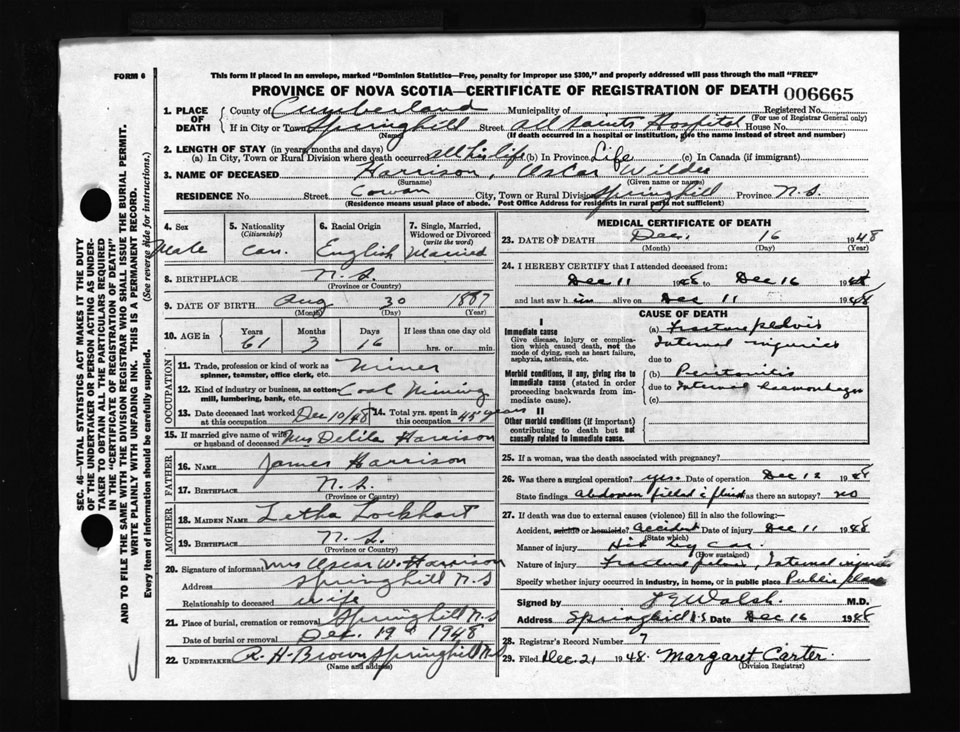 FORM 6
This form if placed in an envelope, marked "Dominion Statistics—Free, penalty for improper use $300," and properly addressed will pass through the mail "FREE"
PROVINCE OF NOVA SCOTIA—CERTIFICATE OF REGISTRATION OF DEATH 006665
1. PLACE OF DEATH
County of Cumberland Municipality of Registered No.
(For use of Registrar General only)
If in City or Town Springhill Street All Saints Hospital House No.
(Name) (If death occurred in a hospital or institution, give the name instead of street and number)
2. LENGTH OF STAY (in years, months and days)
(a) In City, Town or Rural Division where death occurred all his life (b) In Province Life (c) In Canada (if immigrant)
3. NAME OF DECEASED Harrison, Oscar Wilde
(Surname) (Given name or names)
RESIDENCE No. Street Cowan City, Town or Rural Division Springhill Province N.S.
(Residence means usual place of abode. Post Office Address for residents in rural parts not sufficient)
4. Sex Male
5. Nationality (Citizenship) Can.
6. Racial Origin English
7. Single, Married, Widowed or Divorced (write the word) Married
8. BIRTHPLACE N.S.
(Province or Country)
9. DATE OF BIRTH Aug 30 1887
(Month) (Day) (Year)
10. AGE in Years 61 Months 3 Days 16 If less than one day old
hrs. or min.
OCCUPATION
11. Trade, profession or kind of work as spinner, teamster, office clerk, etc. Miner
12. Kind of industry or business, as cotton-mill, lumbering, bank, etc. Coal Mining
13. Date deceased last worked at this occupation Dec 10/48
14. Total yrs. spent in this occupation 45 years
15. If married give name of wife or husband of deceased Mrs Delila Harrison
FATHER
16. NAME James Harrison
17. BIRTHPLACE N.S.
(Province or Country)
MOTHER
18. MAIDEN NAME Letha Lockhart
19. BIRTHPLACE N.S.
(Province or Country)
20. Signature of informant Mrs Oscar W. Harrison
Address Springhill N.S
Relationship to deceased wife
21. Place of burial, cremation or removal Springhill N.S
Date of burial or removal Dec. 19th 1948
22. UNDERTAKER R. H. Brown Springhill N.S
(Name and address)
MEDICAL CERTIFICATE OF DEATH
23. DATE OF DEATH Dec. 16 1948
(Month) (Day) (Year)
24. I HEREBY CERTIFY that I attended deceased from:
Dec 11 1948 to Dec 16 1948
and last saw him alive on Dec 11 1948
CAUSE OF DEATH
I
Immediate cause
Give disease, injury or complication which caused death, not the mode of dying, such as heart failure, asphyxia, asthenia, etc.
(a) Fracture pelvis
Internal injuries
due to
Morbid conditions, if any, giving rise to immediate cause (stated in order proceeding backwards from immediate cause).
(b) Peritonitis
due to Internal haemorrhage
(c)
II
Other morbid conditions (if important) contributing to death but not causally related to immediate cause.
25. If a woman, was the death associated with pregnancy?
26. Was there a surgical operation? yes. Date of operation Dec 12 1948
State findings abdomen filled c fluid was there an autopsy? no
27. If death was due to external causes (violence) fill in also the following:
Accident, suicide or homicide? Accident Date of injury Dec 11 1948
(State which)
Manner of injury Hit by car.
(How sustained)
Nature of injury Fracture pelvis, Internal injuries
Specify whether injury occurred in industry, in home, or in public place Public place
Signed by Walsh M.D.
Address Springhill N.S Date Dec 16 1948
28. Registrar's Record Number 7
29. Filed Dec. 21 1948. Margaret Carter.
(Division Registrar)
SEC. 46—VITAL STATISTICS ACT MAKES IT THE DUTY
OF THE UNDERTAKER OR PERSON ACTING AS UNDER-
TAKER TO OBTAIN ALL THE PARTICULARS REQUIRED
IN THE "CERTIFICATE OF REGISTRATION OF DEATH"
AND TO FILE THE SAME WITH THE DIVISION REGISTRAR WHO SHALL ISSUE THE BURIAL PERMIT.
WRITE PLAINLY WITH UNFADING INK. THIS IS A PERMANENT RECORD.
Every item of information should be carefully supplied. (See reverse side for instructions.)